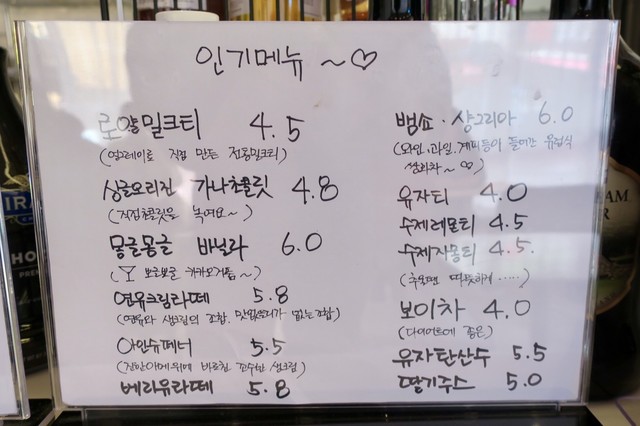 인기메뉴 ~♡
로얄밀크티 4.5
(얼그레이로 직접 만든 전통밀크티)
싱글오리진 가나초콜릿 4.8
(직접초콜릿을 녹여요~)
몽글몽글 바닐라 6.0
뽀글뽀글 카카오거품~)
연유크림라떼 5.8
(연유와 생크림의 조합. 맛있을수가 없는 조합)
아인슈페너 5.5
(진한아메위에 바르친 고수한 생크림)
베리유라떼 5.8
뱅쇼·샹그리아 6.0
(와인, 과일, 계피등이 들어간 유럽식
쌍화차~♡)
유자티 4.0
수제레몬티 4.5
수제자몽티 4.5.
(추울땐 따뜻하게.....)
보이차 4.0
(다이어트에 좋은)
유자탄산수 5.5
딸기주스 5.0